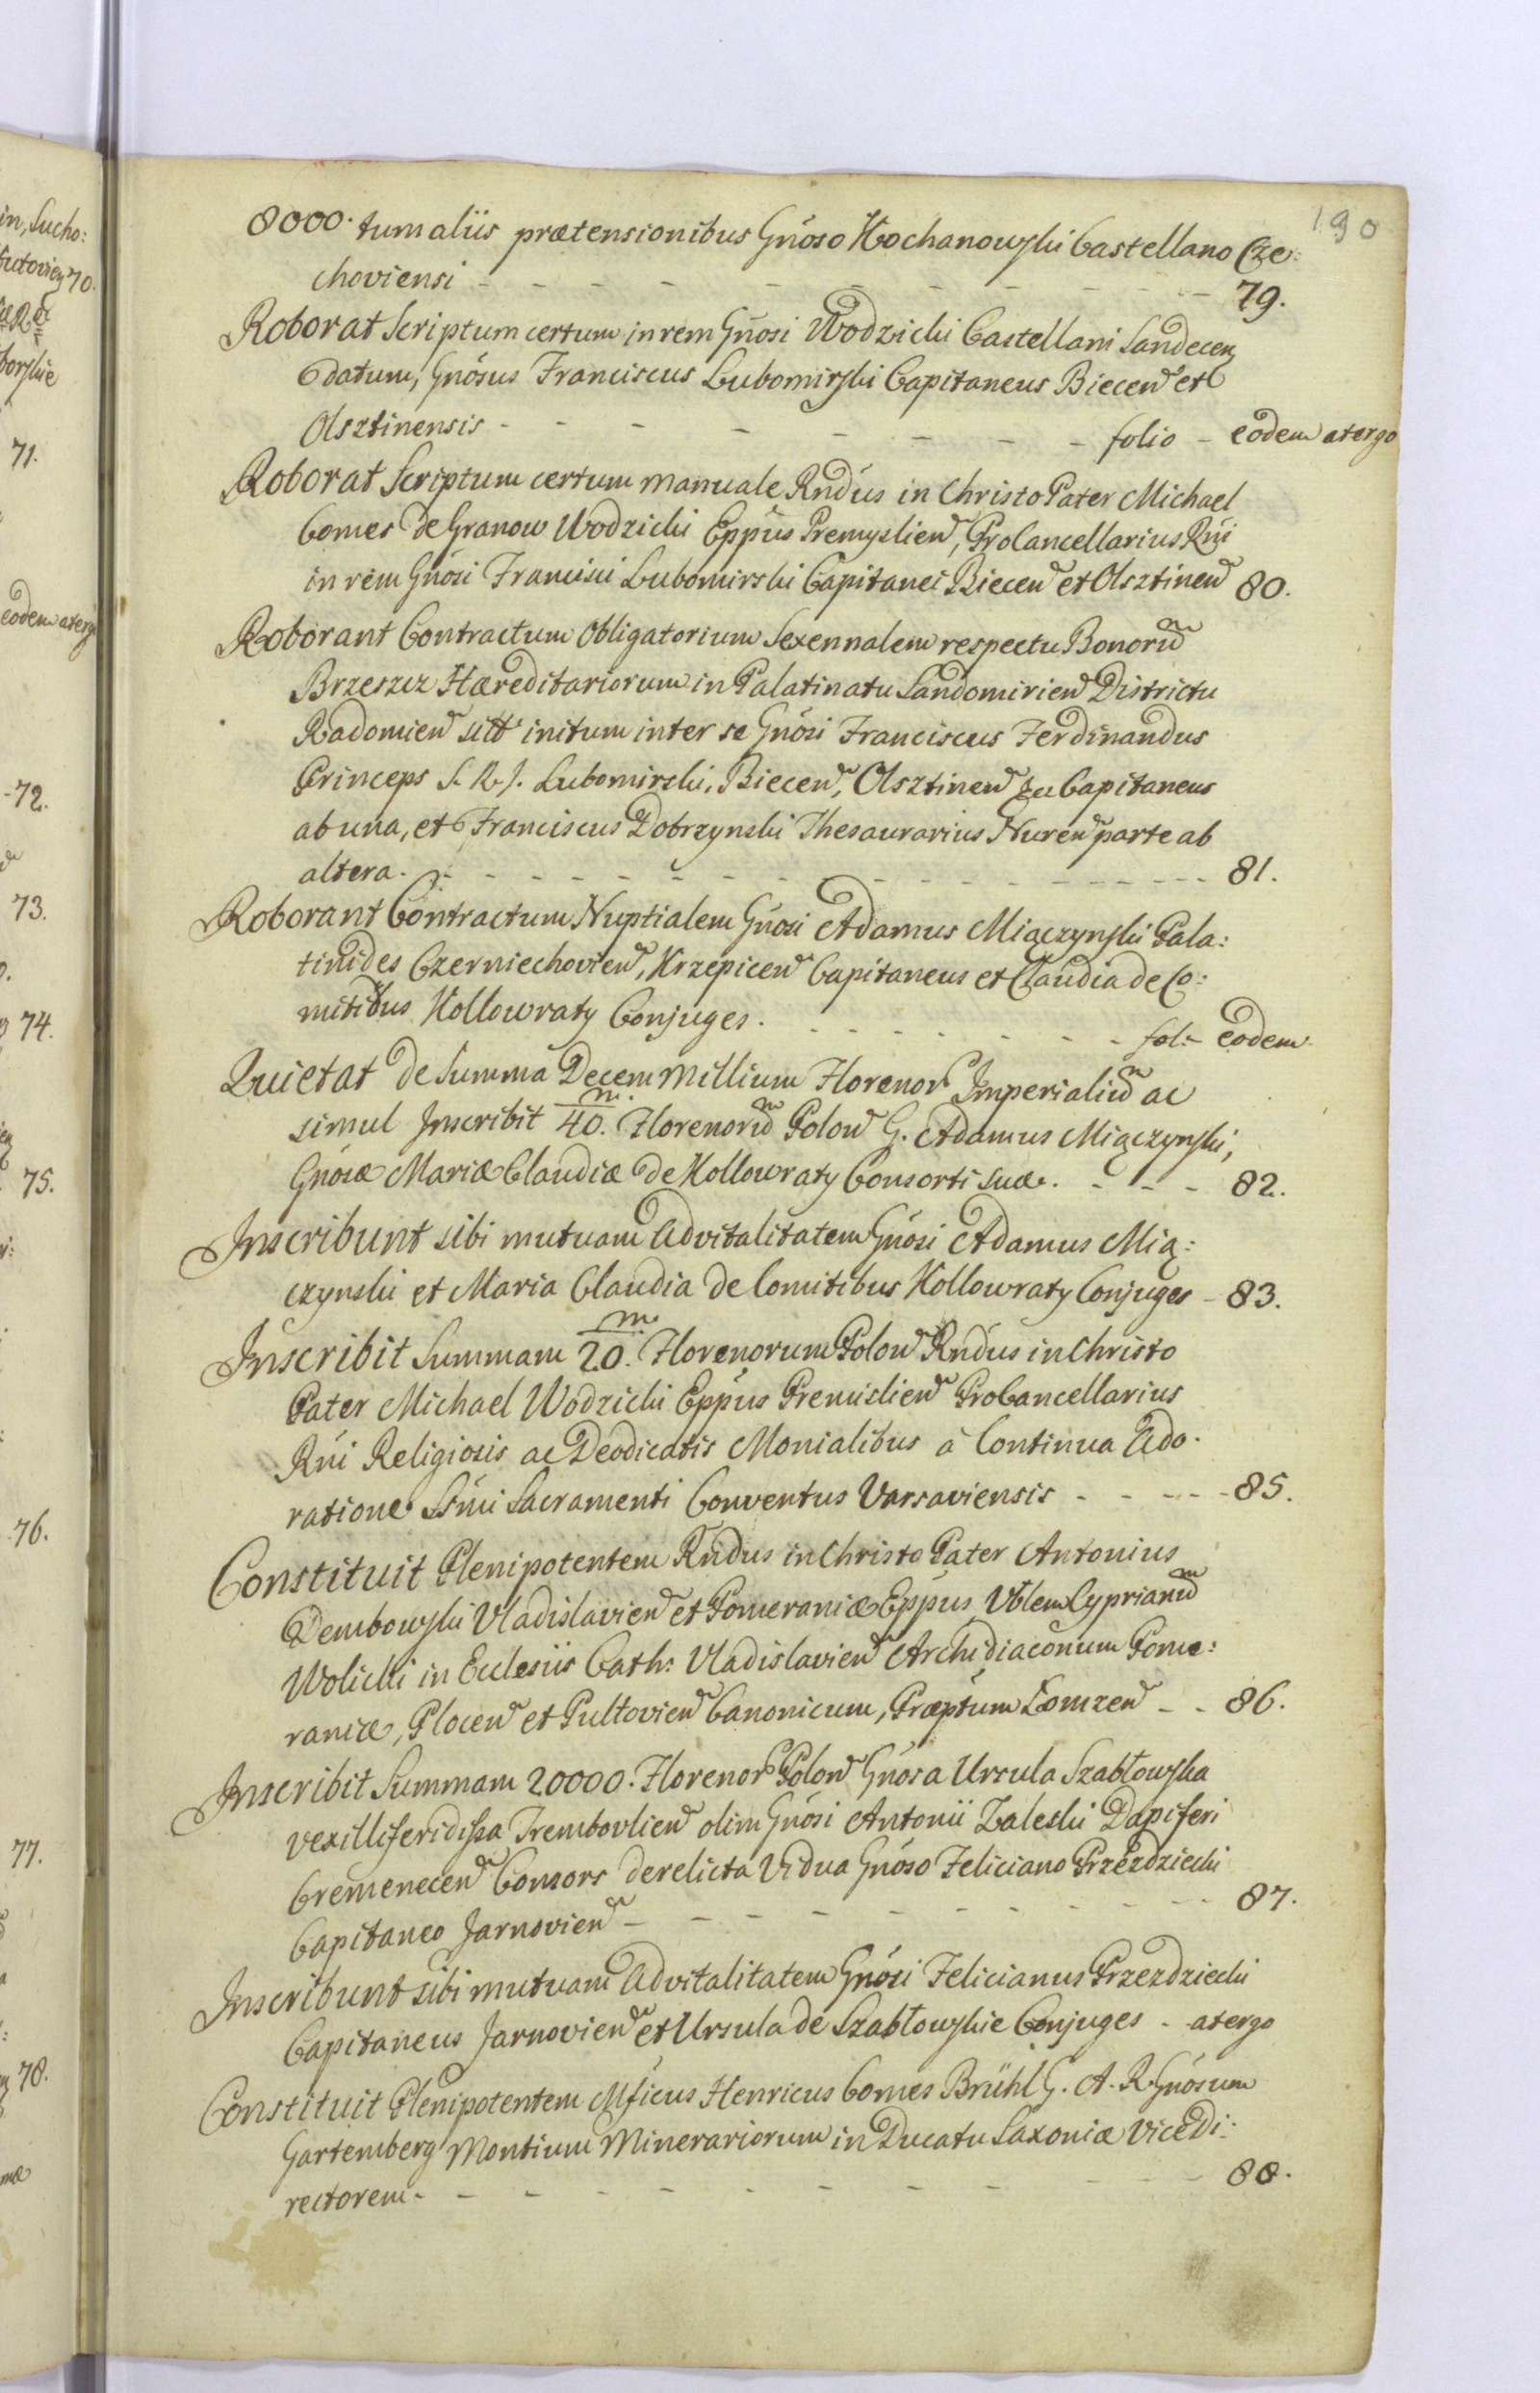 190
8000. tum aliis prætensionibus Gnoso Kochanowski Castellano Cze:
choviensi - - - - - - - - - - 79.
Roborat Scriptum certum in rem Gnosi Wodzicki Castellani Sandecen
datum, Gnosus Franciscus Lubomirski Capitaneus Biecen et
Olsztinensis - - - - - - - - folio - eodem atergo
Roborat Scriptum certum manuale Rndus in Christo Pater Michael
Comes de Granow Wodzicki Eppus Premyslien, ProCancellarius Rni
in rem Gnosi Francisci Lubomirski Capitanei Biecen et Olsztinen 80.
Roborant Contractum Obligatorium Sexennalem respectu Bonorum
Brzeszcz Hæreditariorum in Palatinatu Sandomirien Districtu
Radomien sitt initum inter se Gnosi Franciscus Ferdinandus
Princeps S. R. J. Lubomirski, Biecen, Olsztinen &c Capitaneus
ab una, et Franciscus Dobrzynski Thesaurarius Nuren parte ab
altera. - - - - - - - - - - - - - 81.
Roborant Contractum Nuptialem Gnosi Adamus Miączynski Pala:
tinides Czerniechovien, Krzepicen Capitaneus et Claudia de Co:
mitibus Kollowraty Conjuges. - - - - - - fol: - eodem.
Quietat de Summa Decem Millium Florenor Imperialium ac
simul Inscribit 40.m Florenorum Polon G. Adamus Miączynski,
Gnosæ Mariæ Claudiæ de Kollowraty Consorti suæ. - - - 82.
Inscribunt sibi mutuam Advitalitatem Gnosi Adamus Mią:
czynski et Maria Claudia de Comitibus Kollowraty Conjuges - 83.
Inscribit Summam 20.m Florenorum Polon Rndus in Christo
Pater Michael Wodzicki Eppus Premislien ProCancellarius
Rni Religiosis ac Deodicatis Monialibus à Continua Ado-
ratione Ssmi Sacramenti Conventus Varsaviensis - - - - 85.
Constituit Plenipotentem Rndus in Christo Pater Antonius
Dembowski Vladislavien et Pomeraniæ Eppus Vblem Cyprianum
Wolicki in Ecclesiis Cath: Vladislavien Archidiaconum Pome:
raniæ, Plocen et Pultovien Canonicum, Præptum Łomzen - - 86.
Inscribit Summam 20000. Florenor Polon Gnosa Ursula Szabłowska
vexilliferidissa Trembovlien olim Gnosi Antonii Zaleski Dapiferi
Cremenecen Consors derelicta Vidua Gnoso Feliciano Przezdziecki
Capitaneo Jarnovien - - - - - - - - - 87.
Inscribunt sibi mutuam Advitalitatem Gnosi Felicianus Przezdziecki
Capitaneus Jarnovien et Ursula de Szabłowskie Conjuges - atergo
Constituit Plenipotentem Mficus Henricus Comes Brühl G. A. R. Gnosum
Gartemberg Montium Minerariorum in Ducatu Saxoniæ Vicedi:
rectorem - - - - - - - - - - 88.